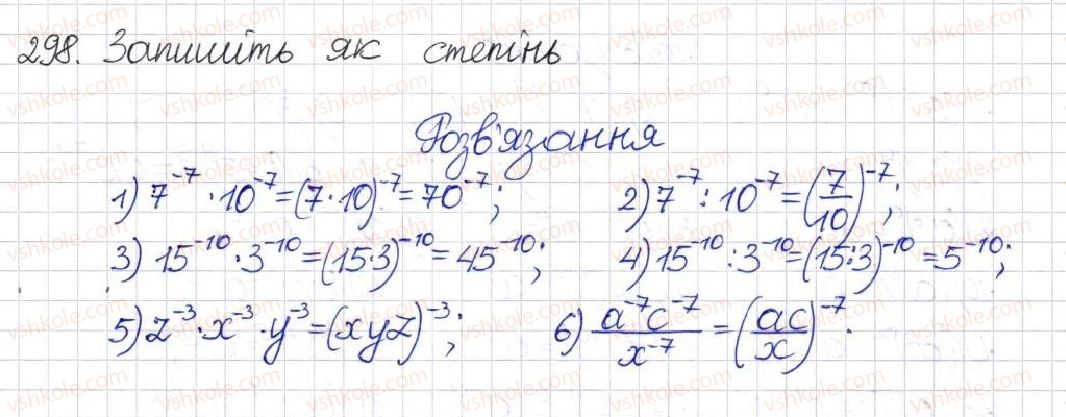 298. Запишіть як степінь
Розв'язання
1) 7⁻⁷ · 10⁻⁷ = (7 · 10)⁻⁷ = 70⁻⁷; 2) 7⁻⁷ : 10⁻⁷ = (7/10)⁻⁷;
3) 15⁻¹⁰ · 3⁻¹⁰ = (15·3)⁻¹⁰ = 45⁻¹⁰; 4) 15⁻¹⁰ : 3⁻¹⁰ = (15:3)⁻¹⁰ = 5⁻¹⁰;
5) z⁻³ · x⁻³ · y⁻³ = (xyz)⁻³; 6) a⁻⁷c⁻⁷/x⁻⁷ = (ac/x)⁻⁷.
vshkole.com